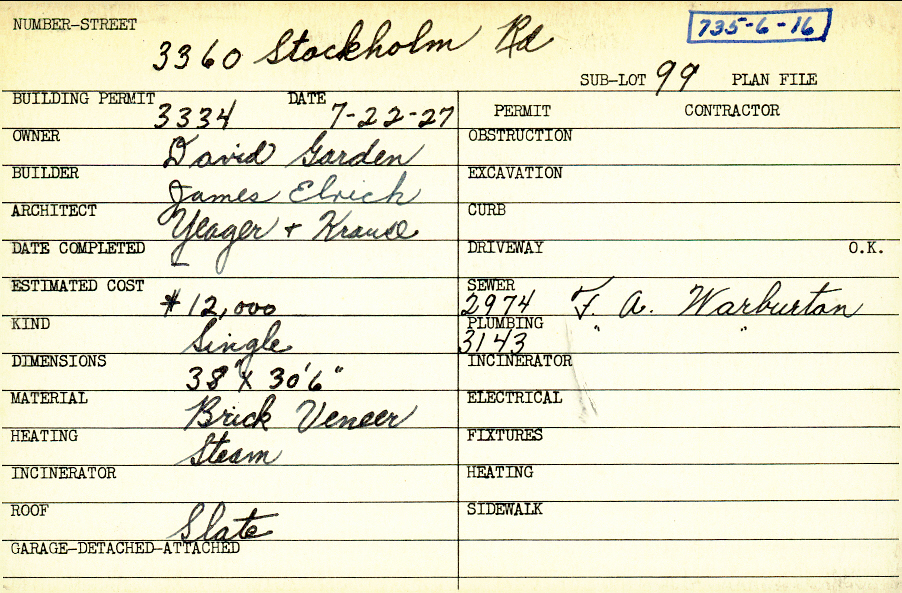 NUMBER-STREET
735-6-16
3360 Stockholm Rd
SUB-LOT 99 PLAN FILE
BUILDING PERMIT 3334 DATE 7-22-27
PERMIT CONTRACTOR
OWNER David Garden
OBSTRUCTION
BUILDER James Elrick
EXCAVATION
ARCHITECT Yeager + Krause
CURB
DATE COMPLETED –
DRIVEWAY O.K.
ESTIMATED COST $12,000
SEWER 2974 F. A. Warburton
KIND Single
PLUMBING 3143 " "
DIMENSIONS 38' X 30'6"
INCINERATOR
MATERIAL Brick Veneer
ELECTRICAL
HEATING Steam
FIXTURES
INCINERATOR
HEATING
ROOF Slate
SIDEWALK
GARAGE-DETACHED-ATTACHED